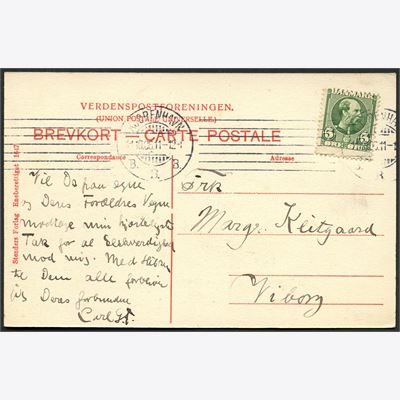 VERDENSPOSTFORENINGEN.
(UNION POSTALE UNIVERSELLE.)
BREVKORT — CARTE POSTALE
Correspondance
Adresse
KØBENHAVN
B. B.
DANMARK
5 5
ØRE ØRE
Stenders Forlag Eneberettiget 1647
Vil De paa egne
og Deres Forældres Vegne
modtage min hjerteligst
Tak for al Elskværdighed
mod mig. Med Hilsen
til Dem alle forbliver
jeg Deres forbundne
Carl
Frk
Margr. Kleitgaard
Viborg